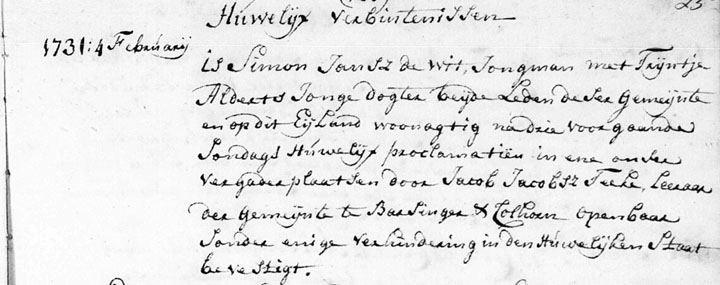 Huwelijx verbintenissen
25
1731: 4 Februarij
is Simon Jansz de wit, Jongman met Tryntje
Alderts Jonge dogter beyde Leden deser Gemeynte
en op dit Eyland woonagtig na drie voorgaande
Sondags Huwelijx proclamatiën in ene onser
vergader plaatsen door Jacob Jacobsz Leeraar
der Gemeynte te Barsinger & Colhorn openbaar
Sonder enige verhindering in den Huwelijken Staat
bevestigt.